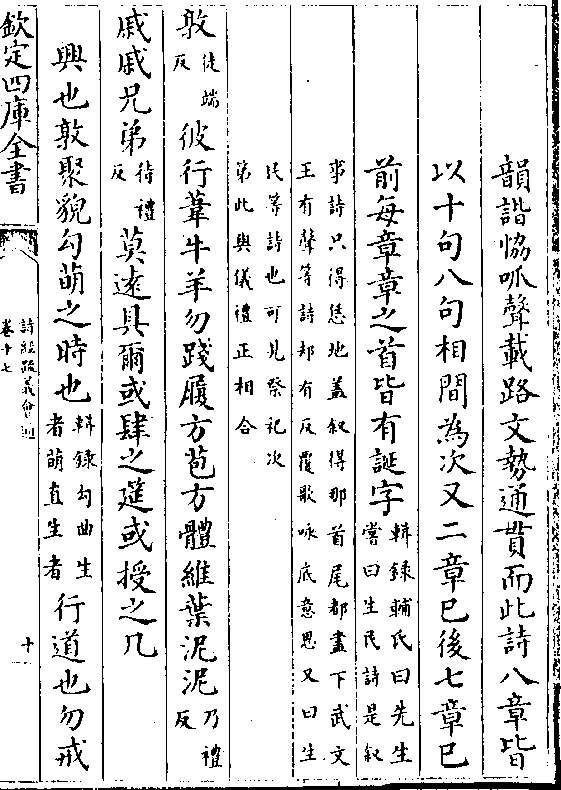 韻諧恊呱聲載路文勢通貫而此詩八章皆
以十句八句相間為次又二章已後七章已
前每章章之首皆有誕字輯錄輔氏曰先生
嘗曰生民詩是叙
事詩只得恁地盖叙得那首尾都盡下武文
王有聲等詩却有反覆歌咏底意思又曰生
民等詩也可見祭祀次
第此與儀禮正相合
敦徒端反彼行葦牛羊勿踐履方苞方體維葉泥泥乃禮反
戚戚兄弟待禮反莫逺具爾或肆之筵或授之几
興也敦聚貌勾萌之時也輯錄勾曲生
者萌直生者行道也勿戒
欽定四庫全書
詩經疏義會通
卷十七
十